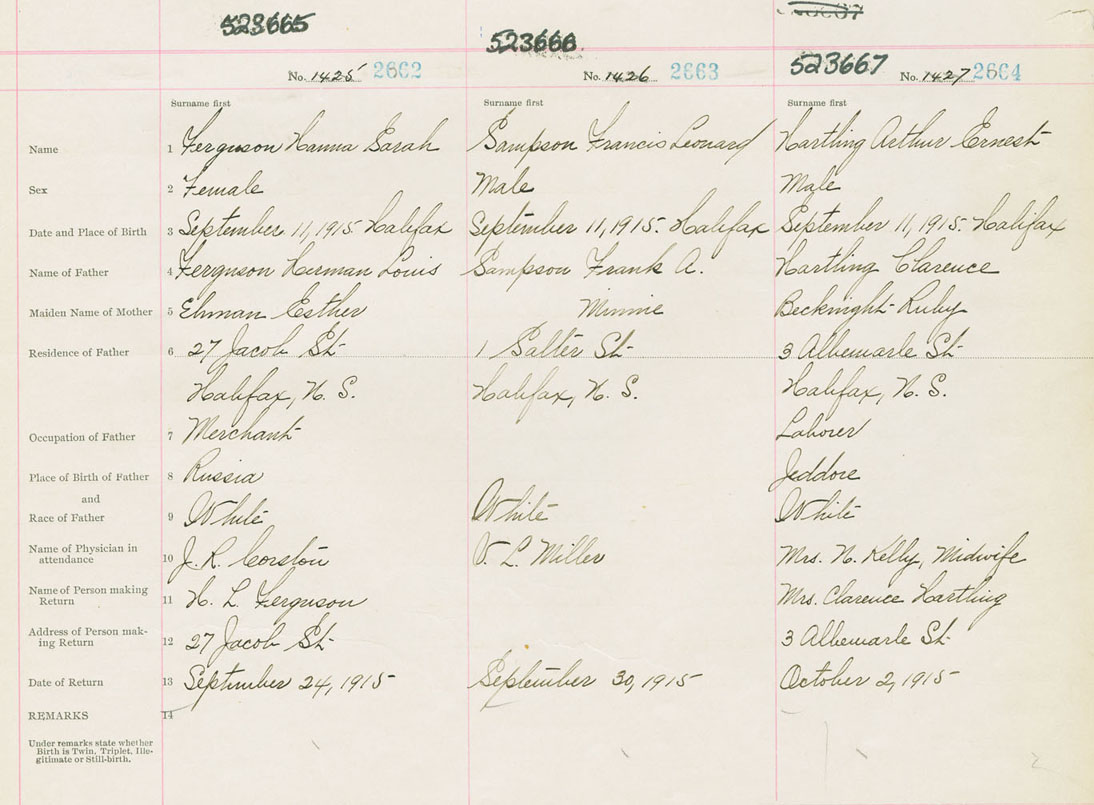 523665
523666
523667
No. 1425 2662
No. 1426 2663
No. 1427 2664
Surname first Surname first Surname first
Name 1 Ferguson Hanna Sarah Sampson Francis Leonard Hartling Arthur Ernest
Sex 2 Female Male Male
Date and Place of Birth 3 September 11, 1915 Halifax September 11, 1915. Halifax September 11, 1915. Halifax
Name of Father 4 Ferguson Herman Louis Sampson Frank A. Hartling Clarence
Maiden Name of Mother 5 Ehman Esther Minnie Becknight Ruby
Residence of Father 6 27 Jacob St 1 Salter St 3 Albemarle St
Halifax, N. S. Halifax, N. S. Halifax, N. S.
Occupation of Father 7 Merchant Laborer
Place of Birth of Father 8 Russia Jeddore
and
Race of Father 9 White White White
Name of Physician in
attendance 10 J. R. Corston V. L. Miller Mrs. N. Kelly, Midwife
Name of Person making
Return 11 H. L. Ferguson Mrs. Clarence Hartling
Address of Person mak-
ing Return 12 27 Jacob St 3 Albemarle St
Date of Return 13 September 24, 1915 September 30, 1915 October 2, 1915
REMARKS 14
Under remarks state whether
Birth is Twin, Triplet, Ille-
gitimate or Still-birth.